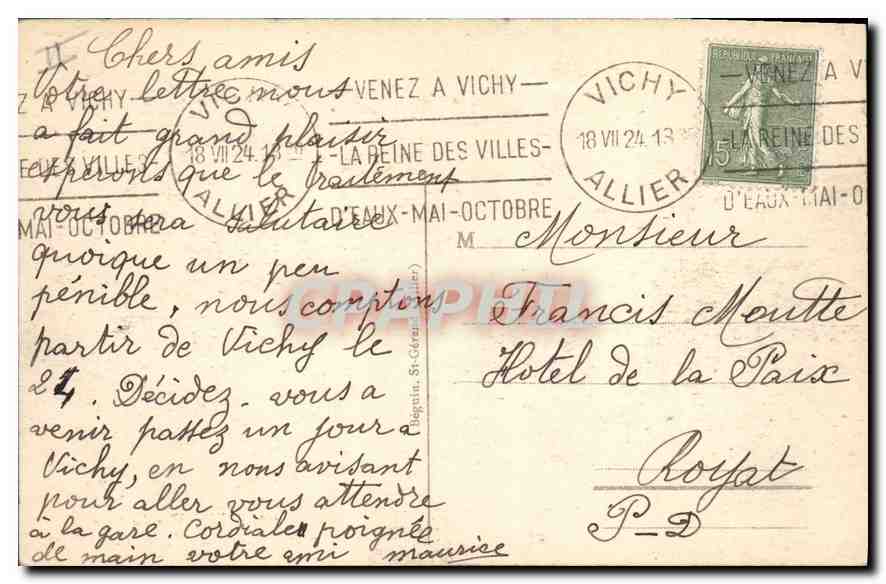 II
Chers amis
Votre lettre nous
a fait grand plaisir
esperons que le traitement
vous sera salutaire
quoique un peu
pénible, nous comptons
partir de Vichy le
24. Décidez-vous a
venir passez un jour a
Vichy, en nous avisant
pour aller vous attendre
à la gare. Cordiale poignée
de main votre ami maurice
VICHY
18 VII 24. 13
ALLIER
-VENEZ A VICHY-
-LA REINE DES VILLES-
D'EAUX-MAI-OCTOBRE
VICHY
18 VII 24. 13
ALLIER
-VENEZ A V
-LA REINE DES
D'EAUX-MAI-O
Z A VICHY-
E DEZ VILLES-
MAI-OCTOBRE
REPUBLIQUE FRANÇAISE
15
Béguin, St-Géran
M Monsieur
Francis Moutte
Hotel de la Paix
Royat
P-D
CPAPHIL